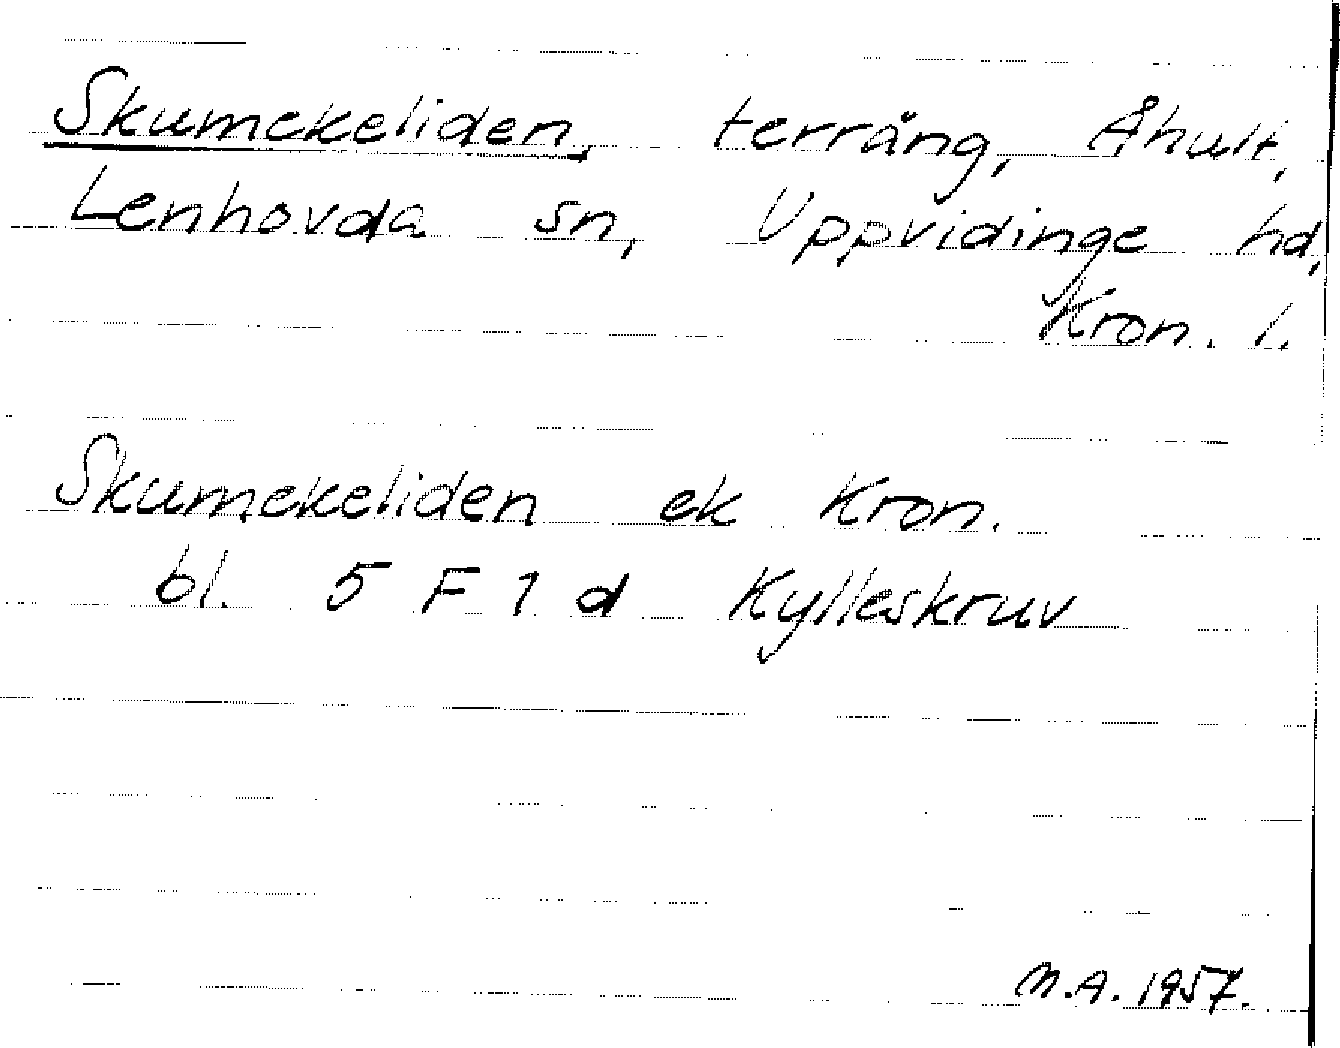 Skumekeliden, terräng, Åhult,
Lenhovda sn, Uppvidinge hd,
Kron. l.
Skumekeliden ek Kron.
bl. 5 F 1 d Kylleskruv
M.A. 1957.